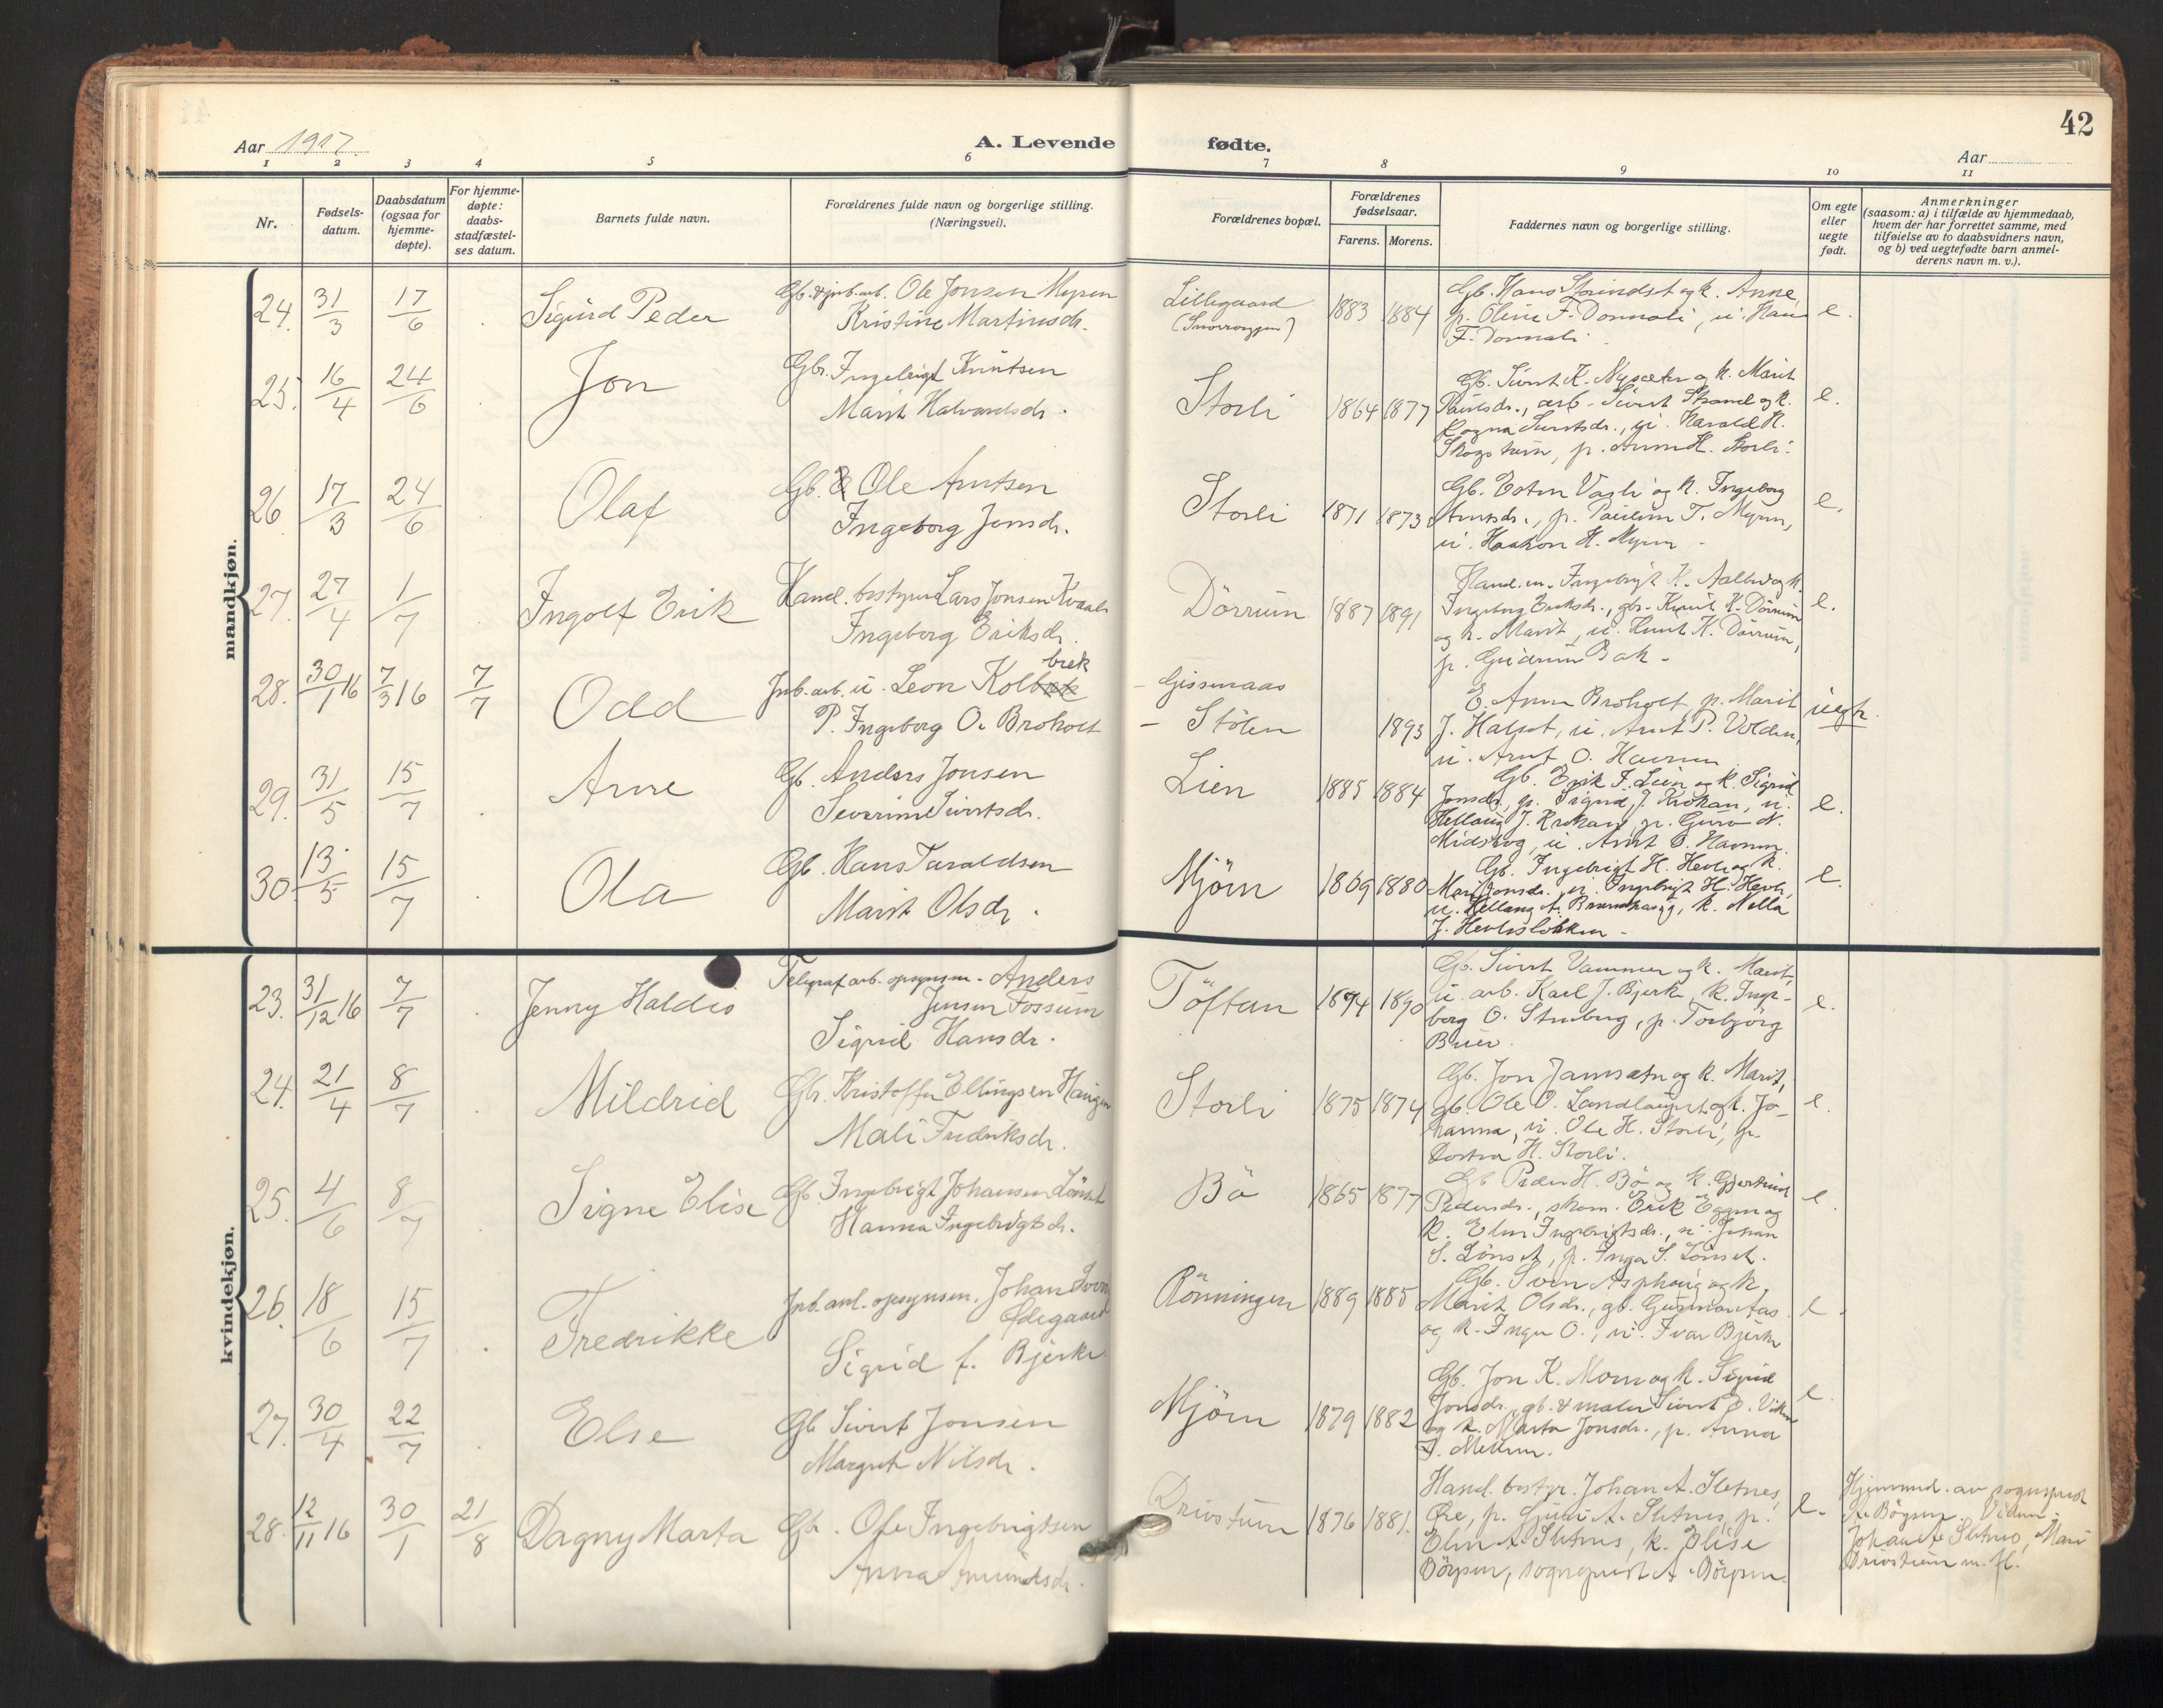 42
Aar 1917.
A. Levende
fødte.
Aar
1 2 3 4 5 6 7 8 9 10 11
Nr.
Fødsels-
datum.
Daabsdatum
(ogsaa for
hjemme-
døpte).
For hjemme-
døpte:
daabs-
stadfæstel-
ses datum.
Barnets fulde navn.
Forældrenes fulde navn og borgerlige stilling.
(Næringsvei).
Forældrenes bopæl.
Forældrenes
fødselsaar.
Farens. Morens.
Faddernes navn og borgerlige stilling.
Om egte
eller
uegte
født.
Anmerkninger
(saasom: a) i tilfælde av hjemmedaab,
hvem der har forrettet samme, med
tilføielse av to daabsvidners navn,
og b) ved uegtefødte barn anmel-
derens navn m. v.).
mandkjøn.
24. 31/3 17/6 Sigurd Peder
Gb. & jnb. arb. Ole Jonsen Myren
Kristine Martinsdr.
Lillegaard
1883 1884
Gb. Hans Strindset og k. Anne,
p. Oline F. Donnali, u. Hans
F. Donnali.
e.
25. 16/4 24/6 Jon
Gbr. Ingebrigt Knutsen
Marit Halvardsdr.
Storli 1864 1877
Gb. Sivert K. Nysæter og k. Marit
Paulsdr., arb. Sivert Strand og k.
Logna Sivertsdr., u. Harald K.
Skogstuin, p. H. Storli.
e.
26 17/3 24/6 Olaf
Gb. Ole Arntsen
Ingeborg Jonsdr.
Storli 1871 1873
Gb. Esten Vasli og k. Ingeborg
Arntsdr., p. Pauline T. Myren,
u. Haakon H. Myren
e.
27. 27/4 1/7 Ingolf Erik
Hand. bestyrer Lars Jonsen Kvaale
Ingeborg Eriksdr.
Dørrum 1887 1891
Hand.m. Ingebrigt K. Aalbu og k.
Ingeborg Eriksdr., gbr. Knut K. Dørrum
og k. Marit, u. Knut K. Dørrum,
p. Gudrun Bak.
e.
28. 30/1 16 7/3 16 7/7 Odd
Jnb. arb. u. Leon Kolbæk brek
P. Ingeborg O. Broholt
- Gissenaas
- Stølen
1893
E. Anne Broholt, p. Marit
J. Halset, u. Arnt P. Volden,
u. Arnt O. Havnen
uegte.
29. 31/5 15/7 Arne
Gb. Anders Jonsen
Severine Sivertsdr.
Lien 1885 1884
Gb. Erik F. Lien og k. Sigrid
Jonsdr., p. Sigrid J. Krokan, u.
Hellaug J. Krokan, p. Guro N.
Midskog, u. Arnt O. Havnen.
e.
30. 13/5 15/7 Ola
Gb. Hans Taraldsen
Marit Olsdr.
Mjøen 1869 1880
Gb. Ingebrigt H. Hevle og k.
Mari Jonsdr., u. Ingebrigt H. Hevle,
u. Hellaug A. k. Nella
J. Hevlesløkken
e.
kvindekjøn.
23. 31/12 16 7/7 Jenny Haldis
Telegrafarb. opsynsm. Anders
Jensen Fossum
Sigrid Hansdr.
Tøftan 1874 1890
Gb. Sivert Vammer og k. Marit,
u. arb. Karl J. Bjerke, k. Inge-
borg O. Stenberg, p. Torbjørg
Buer.
e.
24. 21/4 8/7 Mildrid
Gbr. Kristoffer Ellingsen Haugen
Mali Fredriksdr.
Storli 1875 1874
Gb. Jon Jamsætn og k. Marit,
gb. Ole O. Landlaupet og k. Jo-
hanna, u. Ole H. Storli, p.
Dortea H. Storli.
e.
25. 4/6 8/7 Signe Elise
Gb. Ingebrigt Johansen Lønset
Hanna Ingebrigtsdr.
Bö 1865 1877
Gb. Peder H. Bø og k. Gjertrud
Pedersdr., skom. Erik Eggen og
k. Elen Ingebrigtsdr., u. Johan
S. Lønset, p. Inga S. Lønset.
e.
26. 18/6 15/7 Fredrikke
Jnb. anl. opsynsm. Johan
Ødegaard
Sigrid f. Bjerke
Rönningen 1889 1885
Gb. Sven Asphaug og k.
Marit Olsdr., gb. Gissenaas
og k. Inger O., u. Ivar Bjerke
e.
27. 30/4 22/7 Else
Gb. Sivert Jonsen
Margret Nilsdr.
Mjøen 1879 1882
Gb. Jon K. Moen og k. Sigrid
Jonsdr., gb. & maler Sivert O. Viken
og k. Marta Jonsdr., p. Anna
J. Mellem.
e.
28. 12/11 16 30/1 21/8 Dagny Marta
Gb. Ole Ingebrigtsen
Anna Amundsdr.
Drivstuen 1876 1881.
Hand. bestyr. Johan A. Sletnes,
Øre, p. A. Sletnes, p.
Elen A. Sletnes, k. Elise
Börgsen, sogneprest A. Börgsen.
e.
Hjemmed. av sogneprest
A. Börgsen. Vidner:
Johan A. Sletnes, Mari
Drivstuen m. fl.